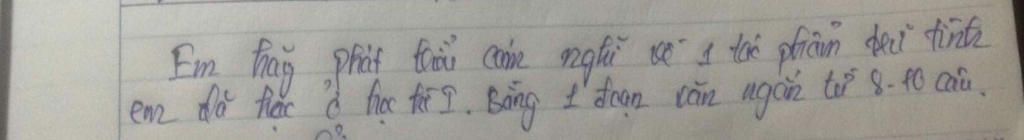 Em hãy phát biểu cảm nghĩ về 1 tác phẩm trữ tình
em đã học ở học kì I. Bằng 1 đoạn văn ngắn từ 8-10 câu.